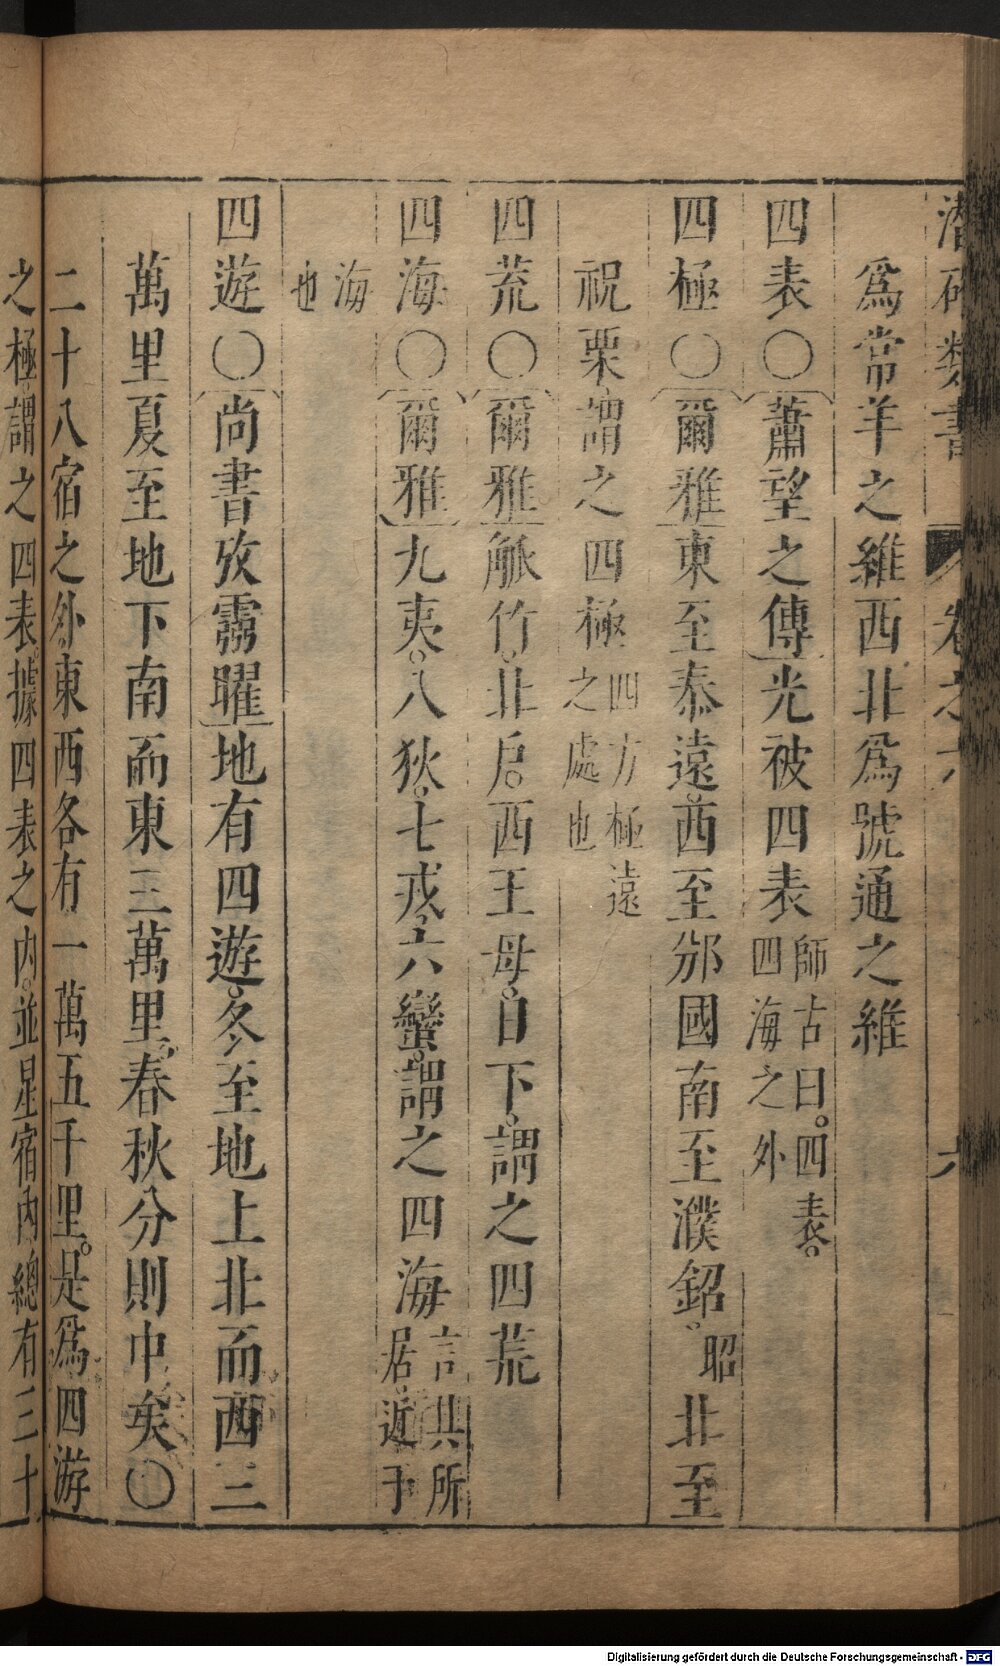 潛研類書 卷之六 六
爲常羊之維西北爲號通之維
四表〇蕭望之傳光被四表師古曰。四表。四海之外
四極〇爾雅東至泰遠。西至邠國南至濮鈆。昭北至
祝栗謂之四極四方極遠之處也
四荒〇爾雅觚竹。北戶。西王母。日下。謂之四荒
四海〇爾雅九夷。八狄。七戎。六蠻。謂之四海言其所居近于
海也
四遊〇尚書攷靈曜地有四遊。冬至地上北而西三
萬里夏至地下南而東三萬里。春秋分則中矣〇
二十八宿之外東西各有一萬五千里。是爲四游
之極謂之四表。據四表之內。並星宿內總有三十
Digitalisierung gefördert durch die Deutsche Forschungsgemeinschaft - DFG